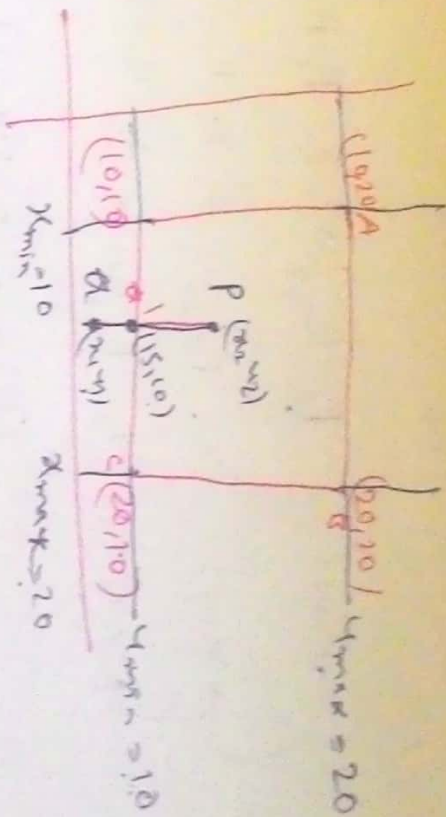 (10,20) A
(20,20)
B
Ymax = 20
P (x2 y2)
1
(15,10)
Q (x1 y1)
(10,10)
C (20,10)
Ymin = 10
xmin = 10
xmax = 20